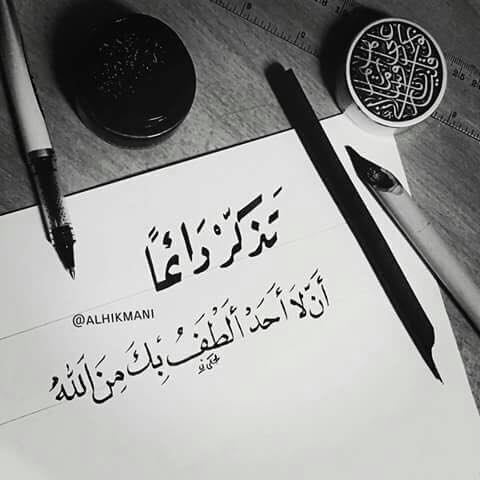 تَذَكَّرْ دَائِمًا
@ALHIKMANI
أَنَّ لَا أَحَدْ أَلْطَفُ بِكَ مِنَ اللهْ